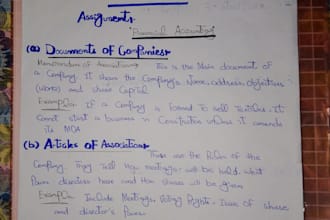 Assignment
Financial Accounting
(a) Documents of Companies
Memorandum of Association This is the Main document of
a Company It shows the Company's Name, address, objectives
(works) and share Capital
Example If a Company is formed to sell Textiles, it
can't start a business in Construction unless it amends
its MOA
(b) Articles of Association
These are the Rules of the
Company They tell How meetings will be held, what
Power directors have and How shares will be given
Example Include Meetings, Voting Rights, Issue of shares
and director's Power